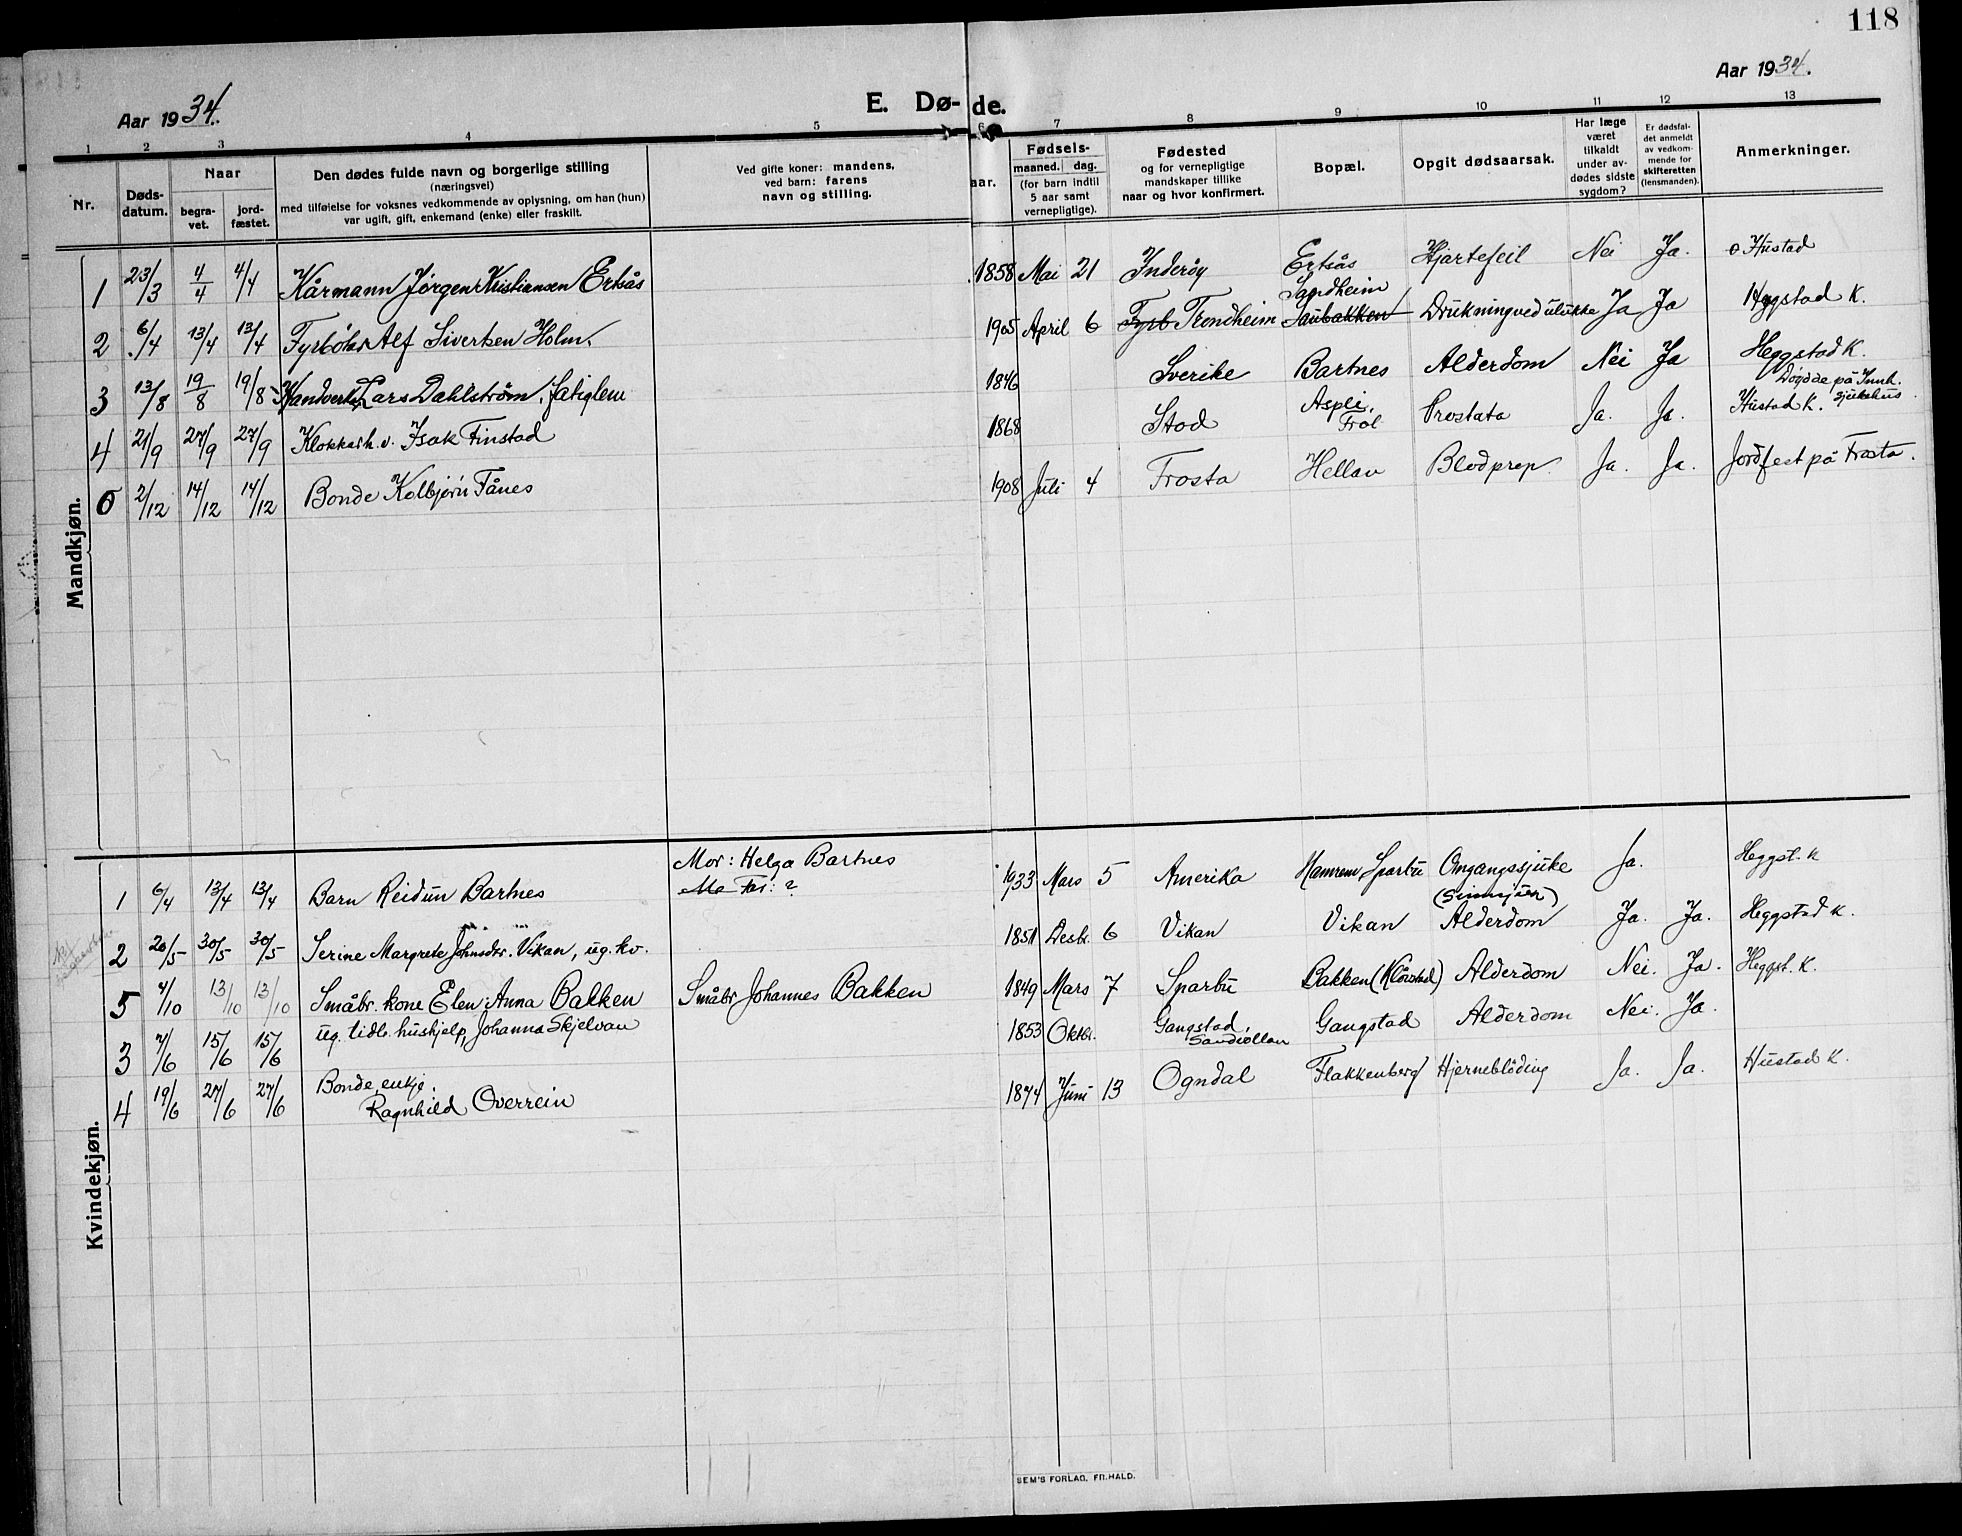 118
Aar 1934.
Aar 1934.
E. Dø- de.
1 2 3 4 5 6 7 8 9 10 11 12 13
Nr.
Døds-datum.
Naar
begra-vet.
jord-fæstet.
Den dødes fulde navn og borgerlige stilling
(næringsvei)
med tilføielse for voksnes vedkommende av oplysning, om han (hun)
var ugift, gift, enkemand (enke) eller fraskilt.
Ved gifte koner: mandens,
ved barn: farens
navn og stilling.
aar.
Fødsels-
maaned. dag.
(for barn indtil
5 aar samt
vernepligtige).
Fødested
og for vernepligtige
mandskaper tillike
naar og hvor konfirmert.
Bopæl.
Opgit dødsaarsak.
Har læge
været
tilkaldt
under av-
dødes sidste
sygdom?
Er dødsfal-
det anmeldt
av vedkom-
mende for
skifteretten
(lensmanden).
Anmerkninger.
Mandkjøn.
1 23/3 4/4 4/4 Kårmann Jørgen Kristiansen Ertsås 1858 Mai 21 Inderøy Ertsås Hjartefeil Nei Ja. o Hustad
2 6/4 13/4 13/4 Fyrbøter Alf Sivertsen Holm. 1905 April 6 Fyrb Trondheim Sandheim Saubakken Drukning ved ulukke Ja Ja Heggstad K.
3 13/8 19/8 19/8 Handverkar Lars Dahlström, fatiglem 1846 Sverike Bartnes Alderdom Nei Ja Heggstad K.
4 21/9 27/9 27/9 Klokkarh.v. Isak Finstad 1868 Stod Aspli, Frol Prostata Ja. Ja. Døydde på Innh. sjukehus. Hustad K.
5 2/12 14/12 14/12 Bonde Kolbjørn Tånes 1908 Juli 4 Frosta Hellan Blodprop Ja. Ja. Jordfest på Frosta.
Kvindekjøn.
1 6/4 13/4 13/4 Barn Reidun Bartnes Mor: Helga Bartnes Mo Far: ? 1933 Mars 5 Amerika Hamrem Sparbu Omgangssjuke Ja. Heggst. K
2 20/5 30/5 30/5 Serine Margrete Johnsdtr. Vikan, ug. kv. 1851 Desbr. 6 Vikan Vikan Alderdom Ja. Ja. Heggstad K.
5 4/10 13/10 13/10 Småbr. kone Elen Anna Bakken Småbr Johannes Bakken 1849 Mars 7 Sparbu Bakken (Klørstad) Alderdom Nei. Ja. Heggst. K.
3 7/6 15/6 15/6 ug. tidl. hushjelp, Johanna Skjelvan 1853 Oktbr. Gangstad, Sandvollan Gangstad Alderdom Nei. Ja.
4 19/6 27/6 27/6 Bonde enkje. Ragnhild Overrein 1874 Juni 13 Ogndal Flakkenberg Hjerneblöding Ja. Ja. Hustad K.
SEM'S FORLAG, FR. HALD.